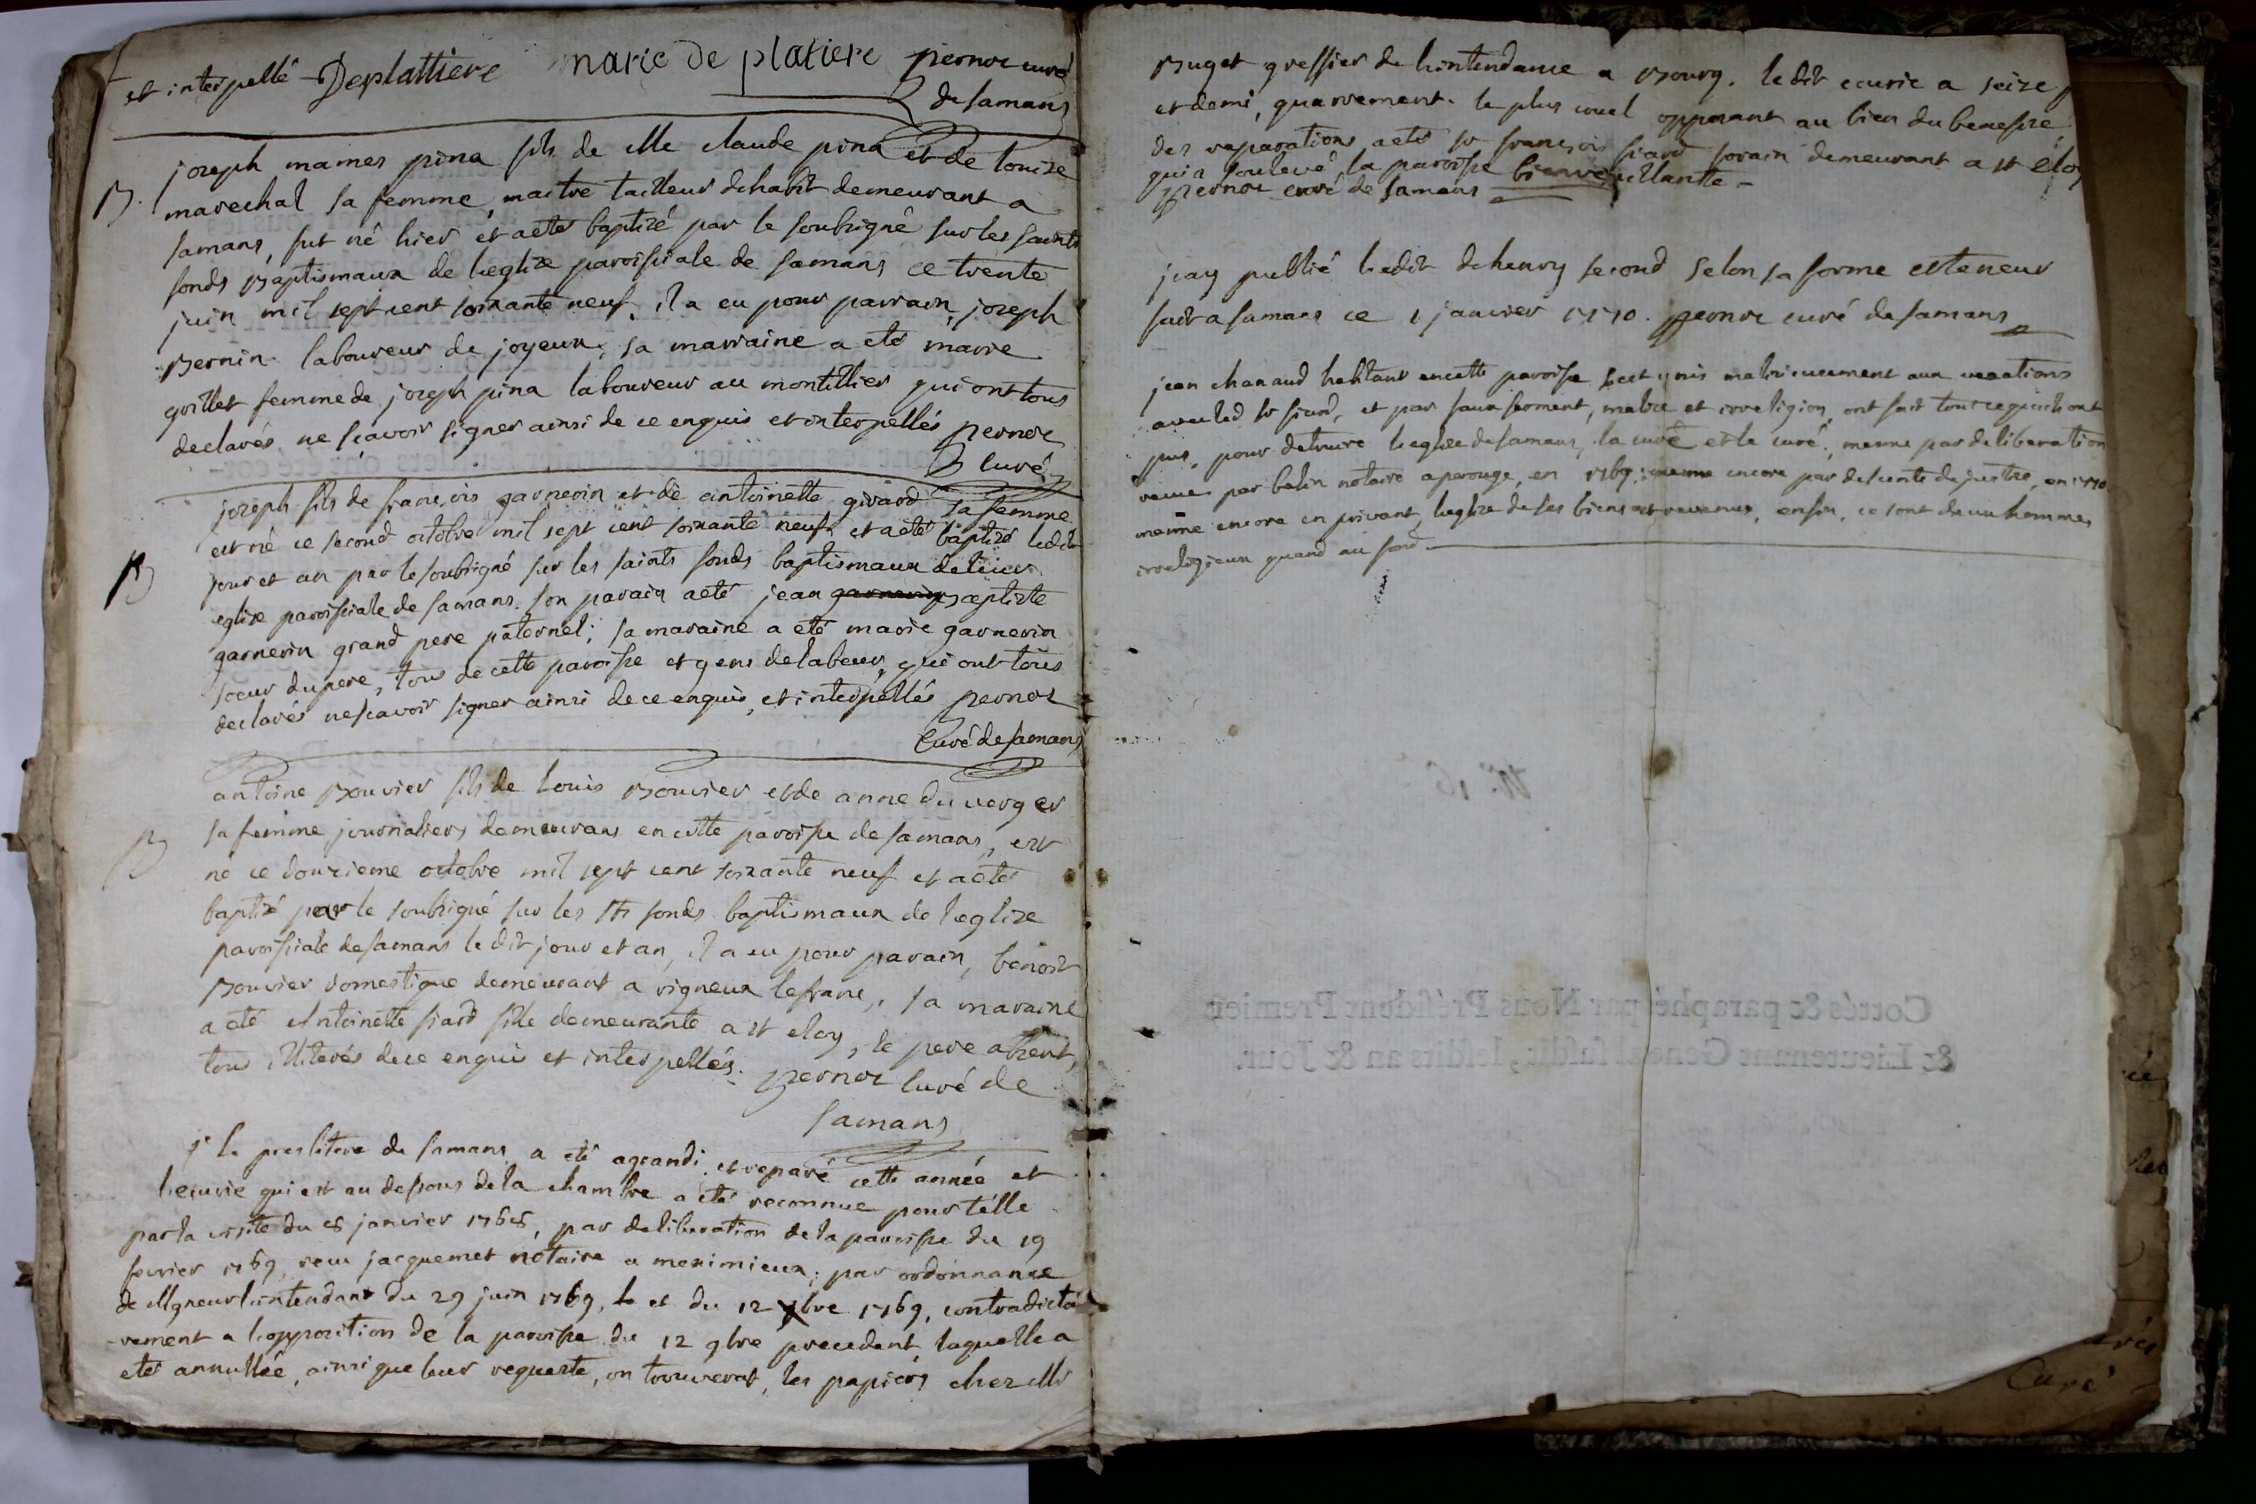 et interpellé Deplattiere marie de platiere pernox curé
de samans
B. joseph mames pina fils de Me claude pina et de louise
marechal sa femme, maitre tailleur dhabit demeurant a
samans, fut né hier et a eté baptizé par le soubsigné sur les saints
fonds Baptismaux de leglize paroissiale de samans ce trente
juin mil sept cent soixante neuf, il a eu pour parrain, joseph
Bernin laboureur de joyeux, sa marraine a eté marie
guillet femme de joseph pina laboureur au montillier qui ont tous
declarés ne sçavoir signer ainsi de ce enquis et interpellés pernox
curé
B joseph fils de françois garnerin et de antoinette girard sa femme
est né ce second octobre mil sept cent soixante neuf et a eté baptizé ledit
jour et an par le soubsigné sur les saints fonds baptismaux de
eglize paroissiale de samans. son parain a eté jean garnerin Baptizte
garnerin grand pere paternel; sa maraine a eté marie garnerin
soeur du pere, tous de cette paroisse et gens de labeur, qui ont tous
declarés ne scavoir signer ainsi de ce enquis, et interpellés pernox
Curé de samans
B antoine Bouvier fils de louis Bouvier et de anne du verger
sa femme journaliers demeurans en cette paroisse de samans, est
né ce douzieme octobre mil sept cent soixante neuf et a eté
baptizé par le soubsigné sur les sts fonds baptismaux de leglize
paroissiale de samans ledit jour et an, il a eu pour parain, benoit
Bouvier domestique demeurant a rigneux lefranc, sa maraine
a eté Antoinette siard fille demeurante a st eloy, le pere absent,
tous illiterés de ce enquis et interpellés. pernox curé de
samans
le presbitere de samans a eté agrandi et reparé cette année et
lecurie qui est au dessous de la chambre a eté reconnue pour telle
par la visite du janvier par deliberation de la paroisse du 19
fevrier 1769, receu jacquemet notaire a meximieux; par ordonnance
de Mgneur lintendant du 29 juin 1769, et du 12 xbre 1769, contradictoi
-rement a lopposition de la paroisse du 12 9bre precedent laquelle a
eté annullée, ainsi que leur requeste, on trouverat, les papiers chez Mr
Buget greffier de lintendance a Bourg. ledit ecurie a seize
et demi, quarrement. le plus cruel opposant au bien du benefice
des reparations a eté sr françois siard forain demeurant a st éloy
qui a soulevé la paroisse bienveillante -
pernox curé de samans
jay publié ledit dhenry second selon sa forme et teneur
fait a samans ce 1 janvier 1770. pernox curé de samans
jean chanaud habitant en cette paroisse sest unis malicieusement aux vexations
avec led sr siard, et par faux serment, malice et irreligion, ont fait tout ce quils ont
pus, pour detruire leglize de samans, la cure et le curé, meme par deliberation
receue par belin notaire a perouge, en 1769; meme encore par descente de justice, en 1770
meme encore en privant leglize de ses biens et revenus, enfin, ce sont deux hommes
irreligieux quand au fond
No. 16
Cottés & paraphé par Nous Président Premier
& Lieutenant Général susdit, lesdits an & Jour.
Curé